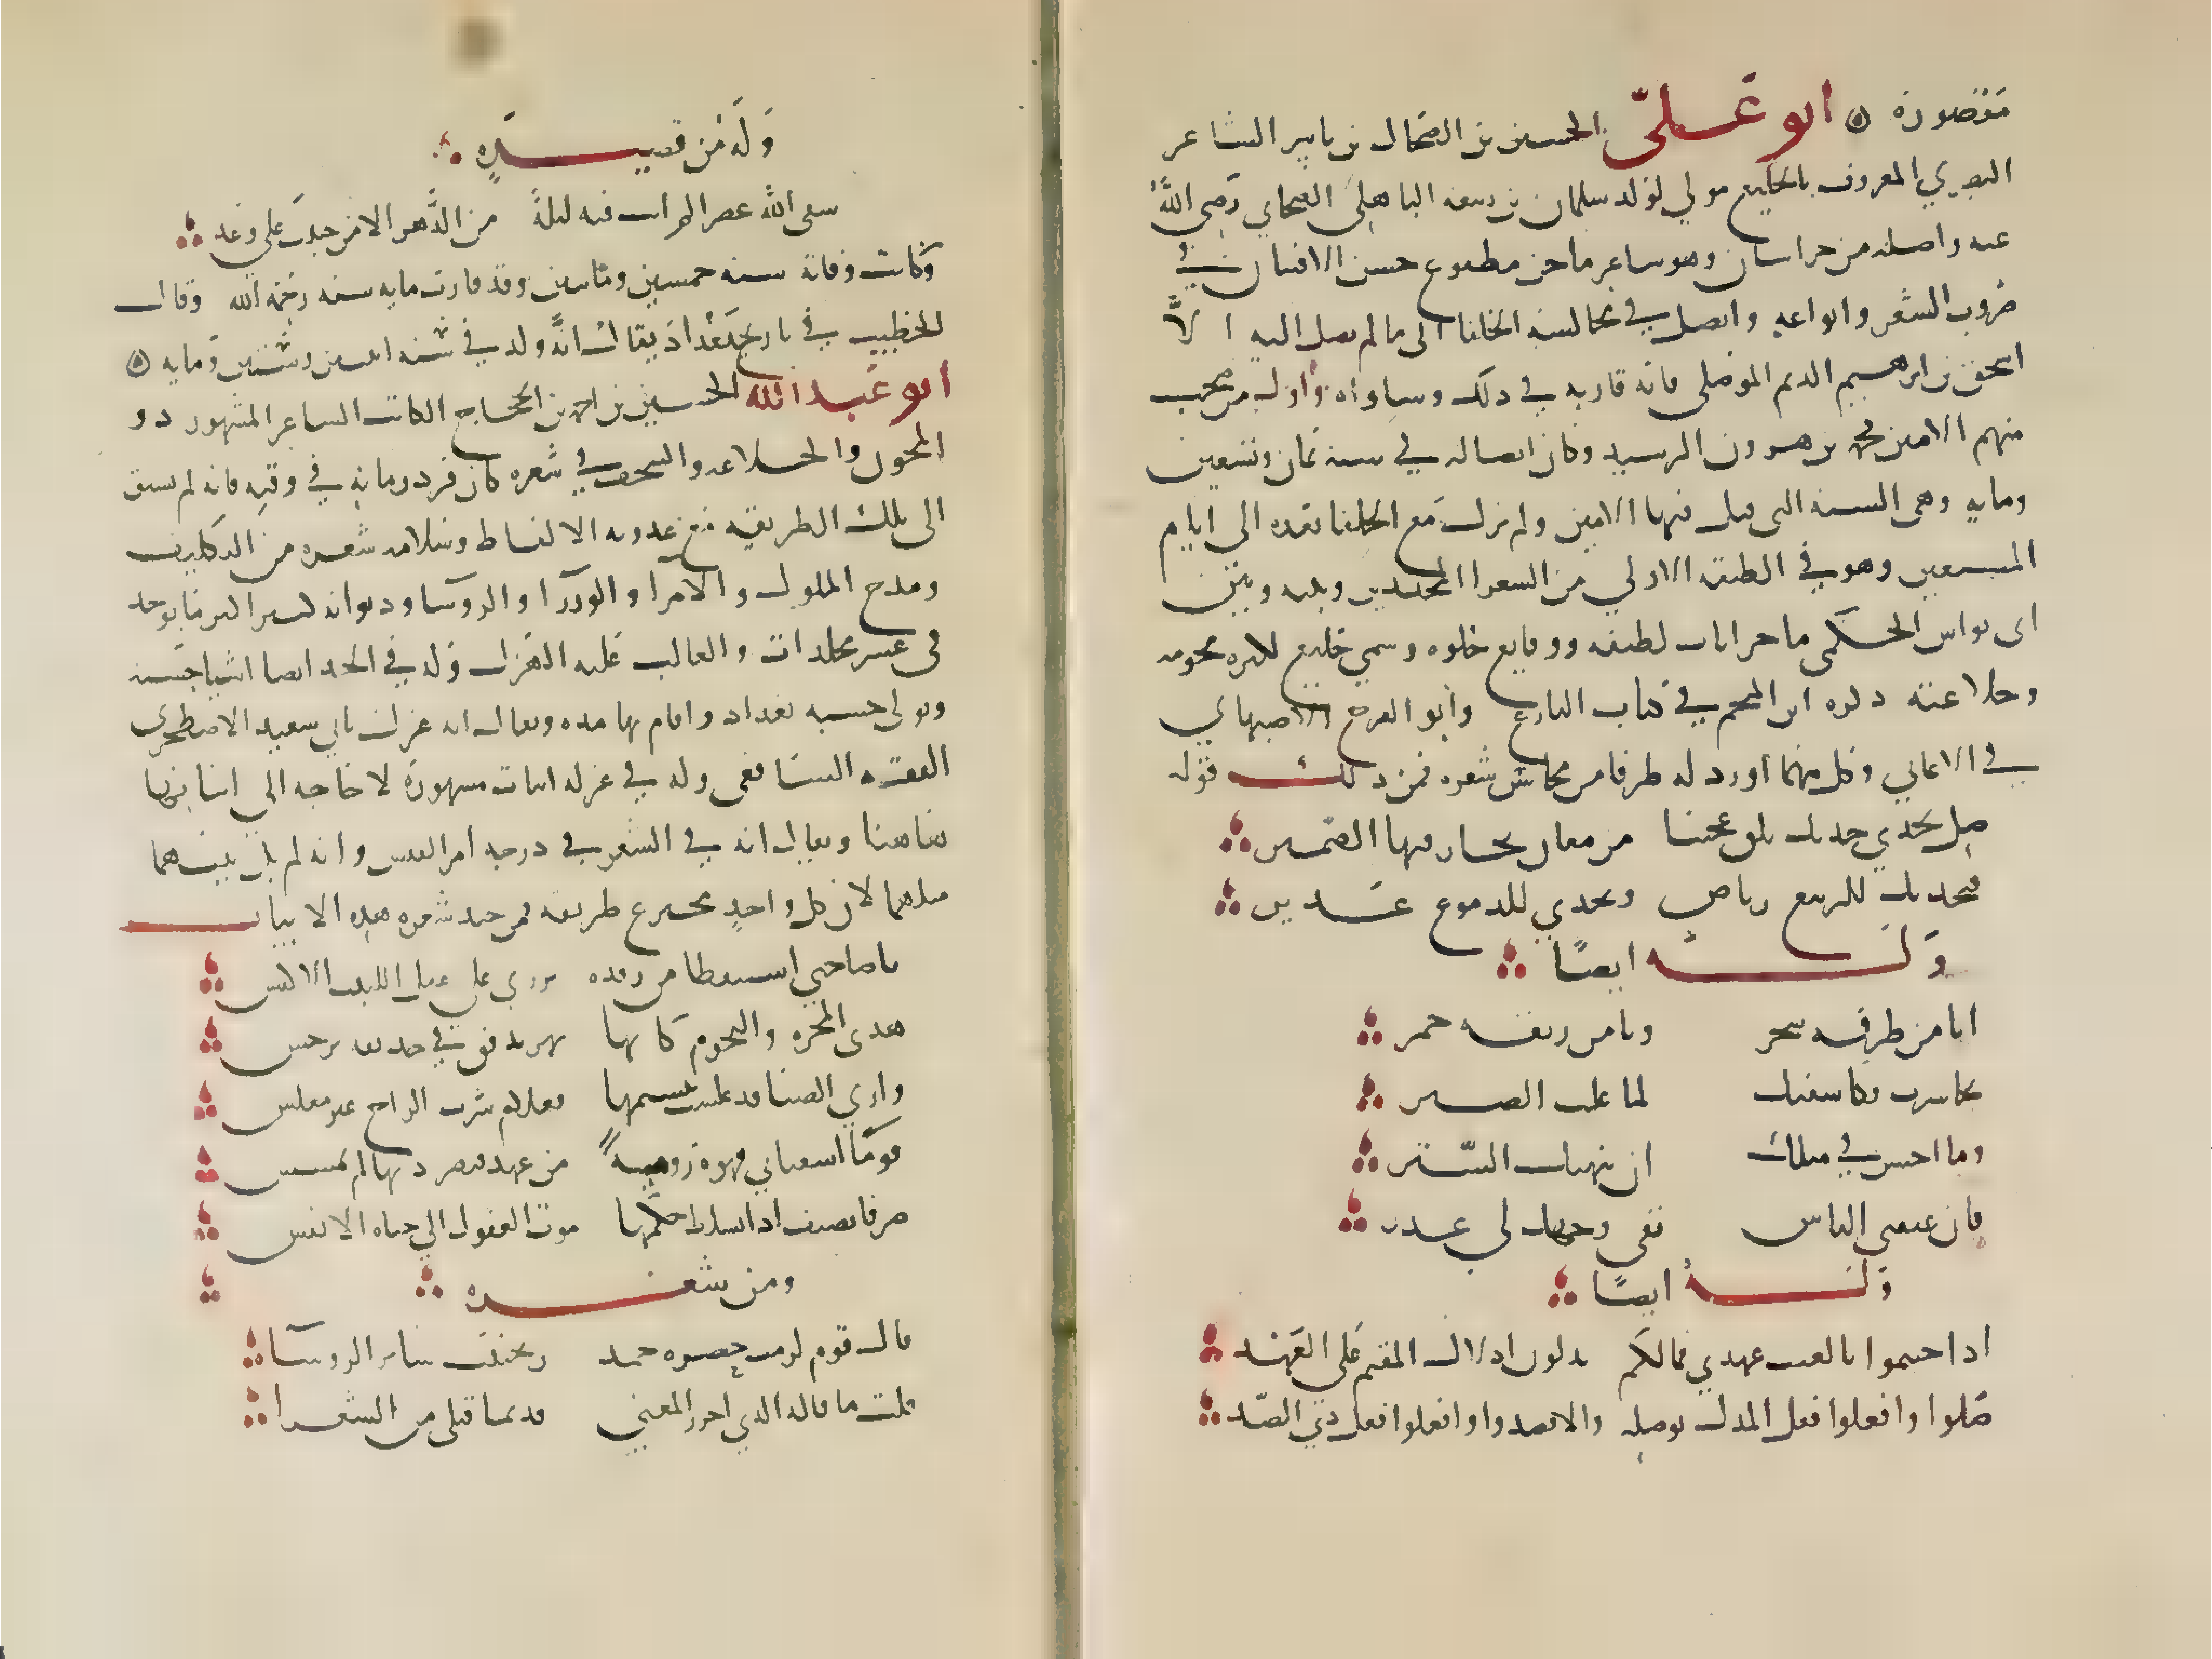 مقصورة ابو علىّ الحسين بن الضحاك بن ياسر الشاعر
البصري المعروف بالخليع مولي لولد سلمان بن ربيعه الباهلى الصحابي رضى اللهُ
عنه واصله من خراسان وهو شاعر ماجن مطبوع حسن الافتنان في
ضروب الشعر وانواعه واتصل في مجالسة الخلفا الى ما لم يصل اليه الاّ
اسحق بن ابرهيم النديم الموصلى فانه قاربه في ذلك وساواه واول من صحب
منهم الامين محمد بن هرون الرشيد وكان اتصاله في سنة ثمان وتسعين
ومايه وهى السنه التى قتل فيها الامين ولم يزل مع الخلفا بعده الى ايام
المستعين وهو في الطبقه الاولي من الشعرا المجيدين وبينه وبين
ابى نواس الحكمى ماجرايات لطيفه ووقايع حلوه وسمي خليع لكثره مجونه
وخلاعته ذكره ابن المنجم في كتاب البارع وابو الفرج الاصبهاني
في الاغاني وكل منهما اورد له طرفا من محاسن شعره فمن ذلك قوله
صل بخدي خديك تلق عجيبا من معان يحار فيها الضمير
فبخديك للربيع رياض وبخدي للدموع غدير
وله ايضًا
ايا من طرفه سحر ويا من ريقه خمر
تجاسرت فكاشفتك لما غلب الصبر
وما احسن في مثلك ان ينهتك السّتر
فان عنفني الناس ففي وجهك لي عذر
وله ايضًا
اذا خنتموا بالغيب عهدي فمالكم تدلون ادلال المقيم على العهْد
صلوا وافعلوا فعل المدل بوصله والا فصدوا وافعلوا فعل ذي الصّد
وله من قصيده
سقى الله عصرا لم ابت فيه ليلةً من الدَّهر الا من حبيب على وعد
وكانت وفاته سنه خمسين ومايتين وقد قارب مايه سنه رحمه الله وقال
الخطيب في تاريخ بغداد يقال انَّه ولد في سنه اثنتين وستين ومايه
ابو عبد الله الحسين بن احمد بن الحجاج الكاتب الشاعر المشهور ذو
المجون والخلاعه والسخف في شعره كان فرد زمانه في وقته فانه لم يسبق
الى تلك الطريقه مع عذوبه الالفاظ وسلامه شعره من التكليف
ومدح الملوك والامرا والوزرا والروسا وديوانه كبير اكثر ما يوجد
فى عشر مجلدات والغالب عليه الهزل وله في الجد ايضا اشيا حسنه
وتولى حسبه بغداد واقام بها مده ويقال انه عزل بابي سعيد الاصطخري
الفقيه الشافعى وله في عزله ابيات مشهورة لا حاجه الى اثباتها
هاهنا ويقال انه في الشعر في درجه امرا القيس وانه لم يك بينهما
مثلهما لان كل واحدٍ مخترع طريقه فمن جيد شعره هذه الابيات
يا صاحبي استيقظا من رقده تزري على عقل اللبيب الاكيس
هذى المجره والنجوم كانها نهر تدفق في حديقه نرجس
واري الصبا قد غلست بنسيمها فعلام شرب الراح غير مغلس
قوما اسقياني قهوة روميةً من عهد قيصر دنها لم يمسس
صرفا تضيف اذا تسلط حكمها موت العقول الى حياه الانفس
ومن شعره
قال قوم لزمت حضره حمد وتجنبت ساير الروسا
قلت ما قاله الذي احرز المعني قديما قبلى من الشعرا